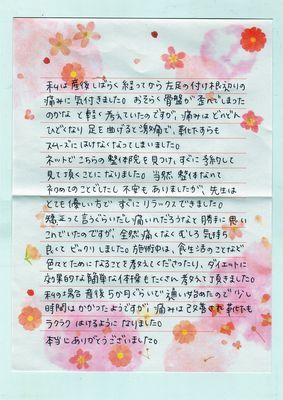 私は産後しばらく経ってから左足の付け根辺りの
痛みに気付きました。おそらく骨盤が歪んでしまった
のかなと軽く考えていたのですが、痛みはどんどん
ひどくなり足を曲げると激痛で、靴下すらも
スムーズにはけなくなってしまいました。
ネットでこちらの整体院を見つけ、すぐに予約して
見て頂くことになりました。当然、整体なんて
初めてのことでしたし不安もありましたが、先生は
とても優しい方で すぐにリラックスできました。
矯正って言うぐらいだし痛いんだろうなと勝手に思い
こんでいたのですが、全然痛くなくむしろ気持ち
良くてビックリしました。施術中は、食生活のことなど
色々とためになることを教えてくださったり、ダイエットに
効果的な簡単な体操もたくさん教えて頂きました。
私の場合 産後5か月ぐらいで通い始めたので少し
時間はかかったようですが、痛みは改善され靴下も
ラクラクはけるようになりました。
本当にありがとうございました。